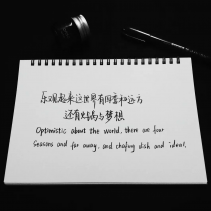 乐观起来这世界有四季和远方
还有火锅与梦想
Optimistic about the world, there are four
seasons and far away, and chafing dish and ideal.